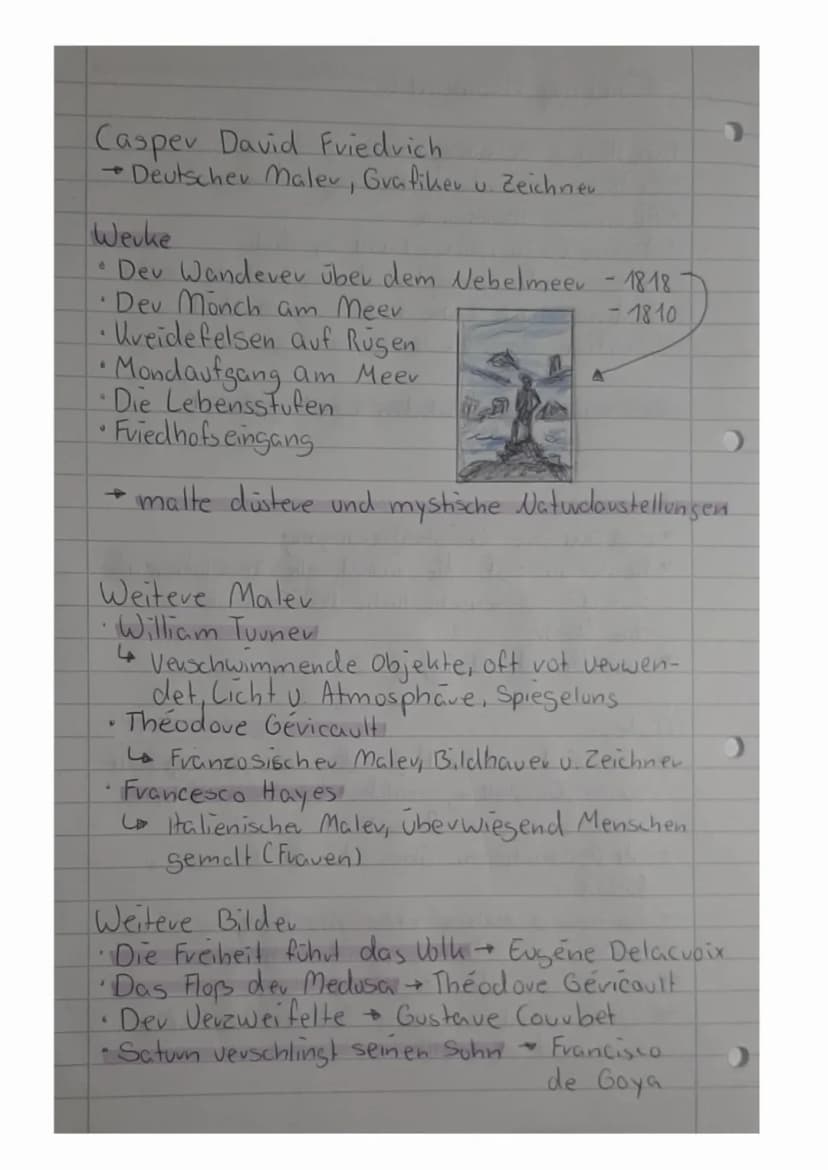 Casper David Friedrich
→ Deutscher Maler, Grafiker u. Zeichner
Werke
• Der Wanderer über dem Nebelmeer - 1818
• Der Mönch am Meer - 1810
• Kreidefelsen auf Rügen
• Mondaufgang am Meer
• Die Lebensstufen
• Friedhofseingang
→ malte düstere und mystische Naturdarstellungen
Weitere Maler
• William Turner
↳ Verschwimmende Objekte, oft rot verwen-
det, Licht u. Atmosphäre, Spiegelung
• Théodore Géricault
↳ Französischer Maler, Bildhauer u. Zeichner
• Francesco Hayes
↳ Italienischer Maler, überwiegend Menschen
gemalt (Frauen)
Weitere Bilder
• Die Freiheit führt das Volk → Eugéne Delacroix
• Das Floß der Medusa → Théodore Géricault
• Der Verzweifelte → Gustave Courbet
• Saturn verschlingt seinen Sohn → Francisco
de Goya